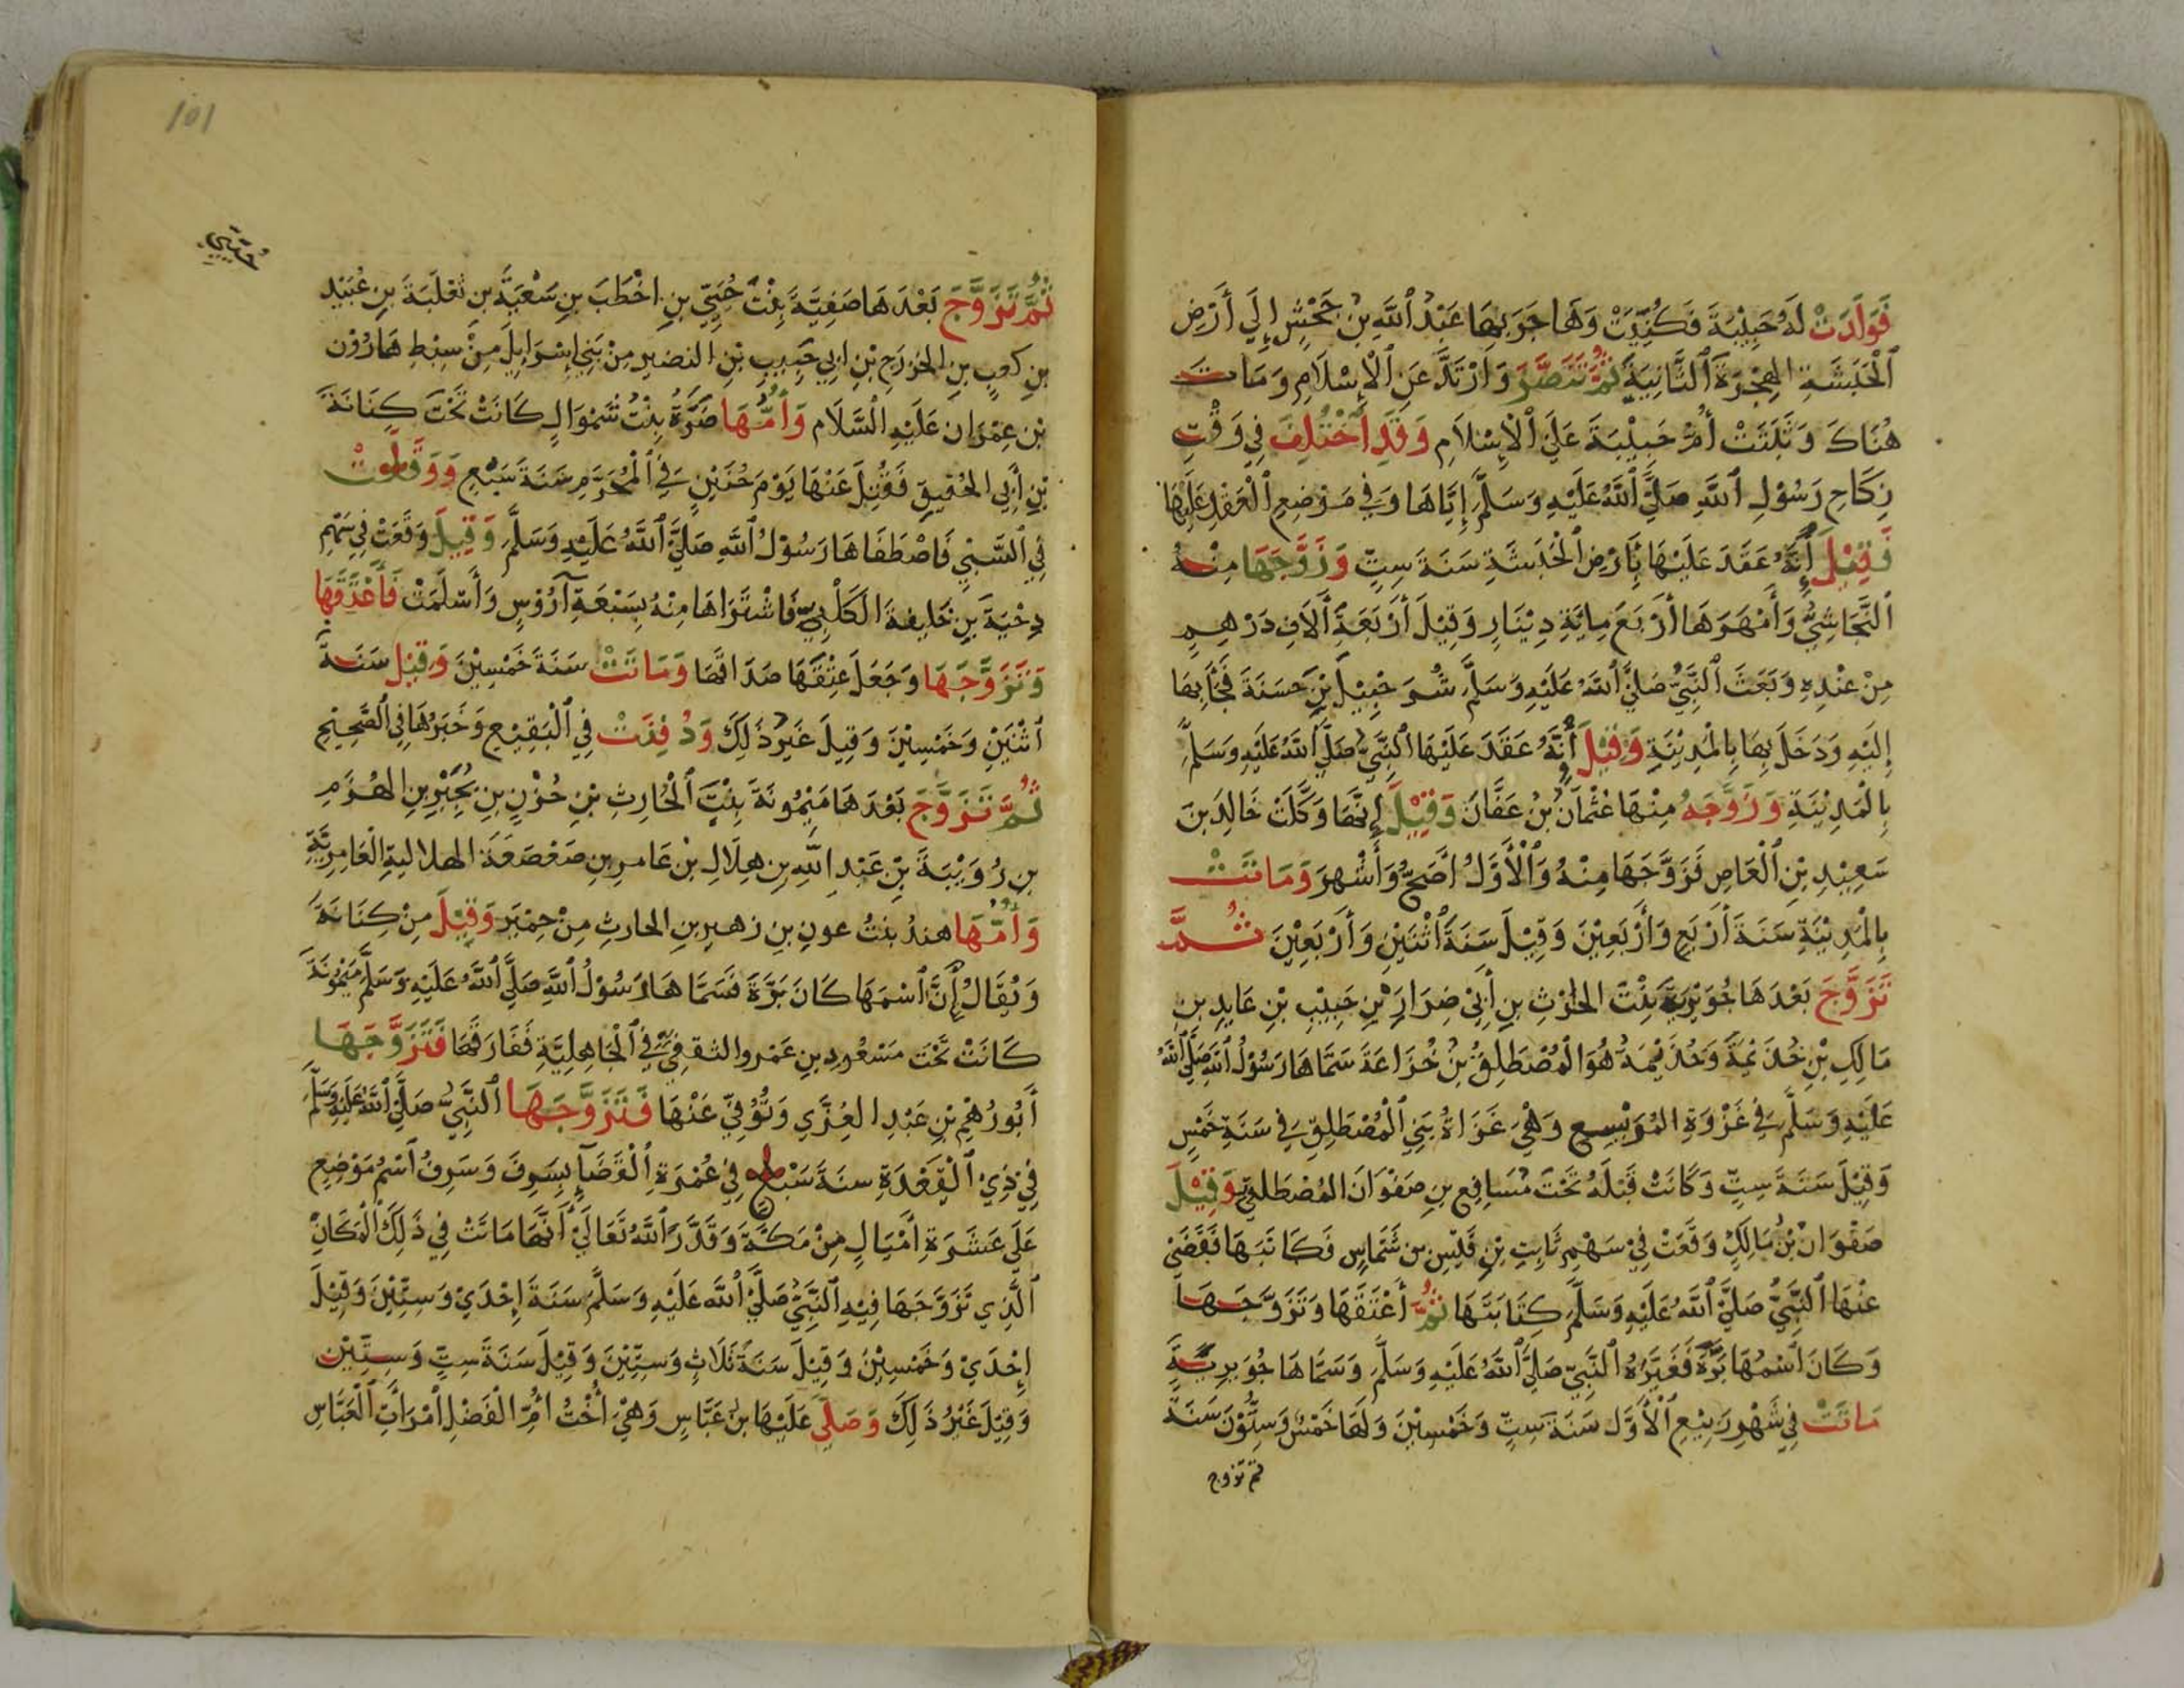 فَوَلَدَتْ لَهُ حَبِيْبَةَ فَكُنِّيَتْ وَهَاجَرَ بِهَا عَبْدُ ٱللَّهِ بْنُ جَحْشٍ إِلَي أَرْضِ
ٱلْحَبَشَةِ الهِجْرَةَ ٱلثَّانِيَةَ ثُمَّ تَنَصَّرَ وَارْتَدَّ عَنِ ٱلْإِسْلَامِ وَمَاتَ
هُنَاكَ وَثَبَتَتْ أُمُّ حَبِيْبَةَ عَلَي ٱلْإِسْلَامِ وَقَدِ ٱخْتُلِفَ فِي وَقْتِ
نِكَاحِ رَسُوْلِ ٱللَّهِ صَلَّي ٱللَّهُ عَلَيْهِ وَسَلَّمَ إِيَّاهَا وَفِي مَوْضِعِ ٱلْعَقْدِ عَلَيْهَا
فَقِيْلَ إِنَّهُ عَقَدَ عَلَيْهَا بِأَرْضِ ٱلْحَبَشَةِ سَنَةَ سِتٍّ وَزَوَّجَهَا مِنْهُ
ٱلنَّجَاشِيُّ وَأَمْهَرَهَا أَرْبَعَ مِايَةِ دِيْنَارٍ وَقِيْلَ أَرْبَعَةَ أَلَافِ دَرْهِمٍ
مِنْ عِنْدِهِ وَبَعَثَ ٱلنَّبِيُّ صَلَّي ٱللَّهُ عَلَيْهِ وَسَلَّمَ شُرَحْبِيْلَ بْنَ حَسَنَةَ فَجَآءَ بِهَا
إِلَيْهِ وَدَخَلَ بِهَا بِالْمَدِيْنَةِ وَقِيْلَ أَنَّهُ عَقَدَ عَلَيْهَا ٱلنَّبِيُّ صَلَّي ٱللَّهُ عَلَيْهِ وَسَلَّمَ
بِالْمَدِيْنَةِ وَزَوَّجَهُ مِنْهَا عُثْمَانُ بْنُ عَفَّانَ وَقِيْلَ إِنَّهَا وَكَّلَتْ خَالِدَ بْنَ
سَعِيْدِ بْنِ ٱلْعَاصِ فَزَوَّجَهَا مِنْهُ وَٱلْأَوَّلُ أَصَحُّ وَأَشْهَرَ وَمَاتَتْ
بِالْمَدِيْنَةِ سَنَةَ أَرْبَعٍ وَأَرْبَعِيْنَ وَقِيْلَ سَنَةَ ٱثْنَتَيْنِ وَأَرْبَعِيْنَ ثُمَّ
تَزَوَّجَ بَعْدَهَا جُوَيْرِيَةَ بِنْتَ الحَارِثِ بنِ أَبِيْ ضِرَارِ بْنِ حَبِيْبِ بْنِ عَايِدِ بنِ
مَالِكِ بْنِ خُذَيْمَةَ وَخُذَيْمَةُ هُوَ الْمُصْطَلِقُ بْنُ خُزَاعَةَ سَمَّاهَا رَسُوْلُ ٱللَّهِ صَلَّي ٱللَّهُ
عَلَيْهِ وَسَلَّمَ فِيْ غَزْوَةِ المُرَيْسِيعِ وَهْيَ غَزَاةُ بَنِي ٱلْمُصْطَلِقِ فِيْ سَنَةِ خَمْسٍ
وَقِيْلَ سَنَةَ سِتٍّ وَكَانَتْ قَبْلَهُ تَحْتَ مُسَافِعِ بنِ صَفْوَانَ المُصْطَلِقِيّ وَقِيْلَ
صَفْوَانَ بْنَ مَالِكٍ وَقَعَتْ فِيْ سَهْمِ ثَابِتِ بْنِ قَيْسِ بن شَمَّاسٍ فَكَاتَبَهَا فَقَضَيٰ
عَنْهَا ٱلنَّبِيُّ صَلَّي ٱللَّهُ عَلَيْهِ وَسَلَّمَ كِتَابَتَهَا ثُمَّ أَعْتَقَهَا وَتَزَوَّجَهَا
وَكَانَ ٱسْمُهَا بَرَّةَ فَغَيَّرَهُ ٱلنَّبِيّ صَلَّي ٱللَّهُ عَلَيْهِ وَسَلَّمَ وَسَمَّاهَا جُوَيرِيَةَ
مَاتَتْ فِيْ شَهْرِ رَبِيْعِ ٱلْأَوَّل سَنَةَ سِتٍّ وَخَمْسِيْنَ وَلَهَا خَمْسٌ وَسِتُّوْنَ سَنَةً
ثم تزوج
١٥١
حُيَيّ
ثُمَّ تَزَوَّجَ بَعْدَهَا صَفِيَّةَ بِنْتَ حُيَيِّ بنِ اخْطَبَ بنِ سَعْيَةَ بنِ ثَعْلَبَةَ بنِ عُبَيْدِ
بنِ كَعبٍ بنِ الخَزرَجِ بْنِ ابِي حَبِيبِ بْنِ النضيرِ مِنْ بَنِي إِسْرَايِلَ مِنْ سِبْطِ هَارُوْن
بْنِ عِمْرَان عَلَيْهِ الْسَّلَام وَأُمُّهَا ضَرَّةُ بِنْتُ شَمْوَالٍ كَانَتْ تَحْتَ كِنَانَةَ
بْنِ أَبِي الحُقَيقِ فَقُتِلَ عَنْهَا يَوْمَ حُنَيْنٍ فِيْ ٱلْمُحَرَّمِ سَنَةَ سَبْعٍ وَوَقَعَتْ
فِي ٱلسَّبْيِ فَاصْطَفَاهَا رَسُوْلُ ٱللَّهِ صَلَّي ٱللَّهُ عَلَيْهِ وَسَلَّمَ وَقِيْلَ وَقَعَتْ فِي سَهْمِ
دِحْيَةَ بنِ خَلِيفةَ الكَلْبِيِّ فَاشْتَرَاهَا مِنْهُ بِسَبْعَةِ آرُؤسٍ وَأَسْلَمَتْ فَأَعْتَقَهَا
وَتَزَوَّجَهَا وَجَعَلَ عِتْقَهَا صَدَاقَهَا وَمَاتَتْ سَنَةَ خَمْسِيْنَ وَقِيْل سَنَةَ
ٱثْنَيْنِ وَخَمْسِيْنَ وَقِيْلَ غَيْرَ ذٰلِكَ وَدُفِنَتْ فِي ٱلْبَقِيْعِ وَخَبَرُهَا فِي ٱلصَّحِيْحِ
ثُمَّ تَزَوَّجَ بَعْدَهَا مَيْمُونَةَ بِنْتَ ٱلْحَارِثِ بْنِ حُزْنِ بنِ بُجَيْرِ بنِ الهُزَمِ
بنِ رُوَيْبَةَ بْنِ عَبْدِ اللَّهِ بنِ هِلَالِ بْنِ عَامرِ بنِ صَعْصَعَةَ الهلاليةِ الْعَامِرِيَّةِ
وَأُمُّهَا هندُ بنتُ عونِ بنِ زهيرِ بنِ الحارثِ مِنْ حِمْيَر وَقِيْلَ مِنْ كِنَانَةَ
وَيُقَالُ إِنَّ ٱسْمَهَا كَانَ بَرَّةَ فَسَمَّاهَا رَسُوْلُ ٱللَّهِ صَلَّي ٱللَّهُ عَلَيْهِ وَسَلَّمَ مَيْمُوْنَةَ
كَانَتْ تَحْتَ مَسْعُودِ بنِ عَمْرو الثقفِيّ فِيْ ٱلْجَاهِلِيَّةِ فَفَارَقَهَا فَتَزَوَّجَهَا
أَبُو رُهْمِ بْنِ عَبْدِ العُزَّي وَتُوُفِّيَ عَنْهَا فَتَزَوَّجَهَا ٱلنَّبِيُّ صَلَّي ٱللَّهُ عَلَيْهِ وَسَلَّمَ
فِيْ ذِيْ ٱلْقِعْدَةِ سنَةَ سَبْعٍ فِيْ عُمْرَةِ ٱلْقَضَآءِ بِسَرِفَ وَسَرِفُ ٱسْمُ مَوْضِعٍ
عَلَي عَشَرَةِ أَمْيَالٍ مِنْ مَكَّةَ وَقَدَّرَ ٱللَّهُ تَعَالَي أَنَّهَا مَاتَتْ فِي ذَلِكَ ٱلْمَكَانِ
ٱلَّذِي تَزَوَّجَهَا فِيْهِ ٱلنَّبِيُّ صَلَّي ٱللَّه عَلَيْهِ وَسَلَّمَ سَنَةَ إِحْدَيْ وَسِتِّيْنَ وَقِيْلَ
إِحْدَيْ وَخَمْسِيْنَ وَقِيْلَ سَنَةَ ثَلَاثٍ وَسِتِّيْنَ وَقِيْلَ سَنَةَ سِتٍّ وَسِتِّيْن
وَقِيْلَ غَيْرُ ذَلِكَ وَصَلَّي عَلَيْهَا بنُ عَبَّاسٍ وَهْيَ أُخْتُ أُمِّ الْفَضْلِ ٱمْرَأَتِ ٱلْعَبَّاسِ